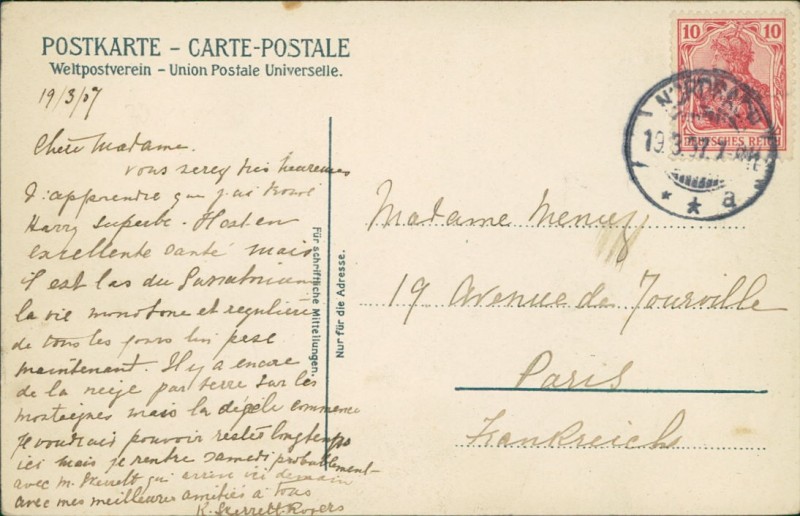 POSTKARTE – CARTE-POSTALE
Weltpostverein – Union Postale Universelle.
19/3/07
Chère Madame.
vous serez très heureuses
d'apprendre que j'ai trouvé
Harry superbe. Il est en
excellente santé mais
il est las du Sanatorium
la vie monotone et regulière
de tous les jours lui pese
maintenant. Il y a encore
de la neige par terre sur les
montaignes mais la dégèle commence
Je voudrais pouvoir rester longtemps
ici mais je rentre samedi probablement
avec m. Skerrett qui arrive ici demain
avec mes meilleures amitiés à tous
K. Skerrett-Rogers
Für schriftliche Mitteilungen.
Nur für die Adresse.
10 10
DEUTSCHES REICH
NORDRACH
19.3.07.
* * a
Madame Menuz
19 Avenue de Tourville
Paris
Frankreichs